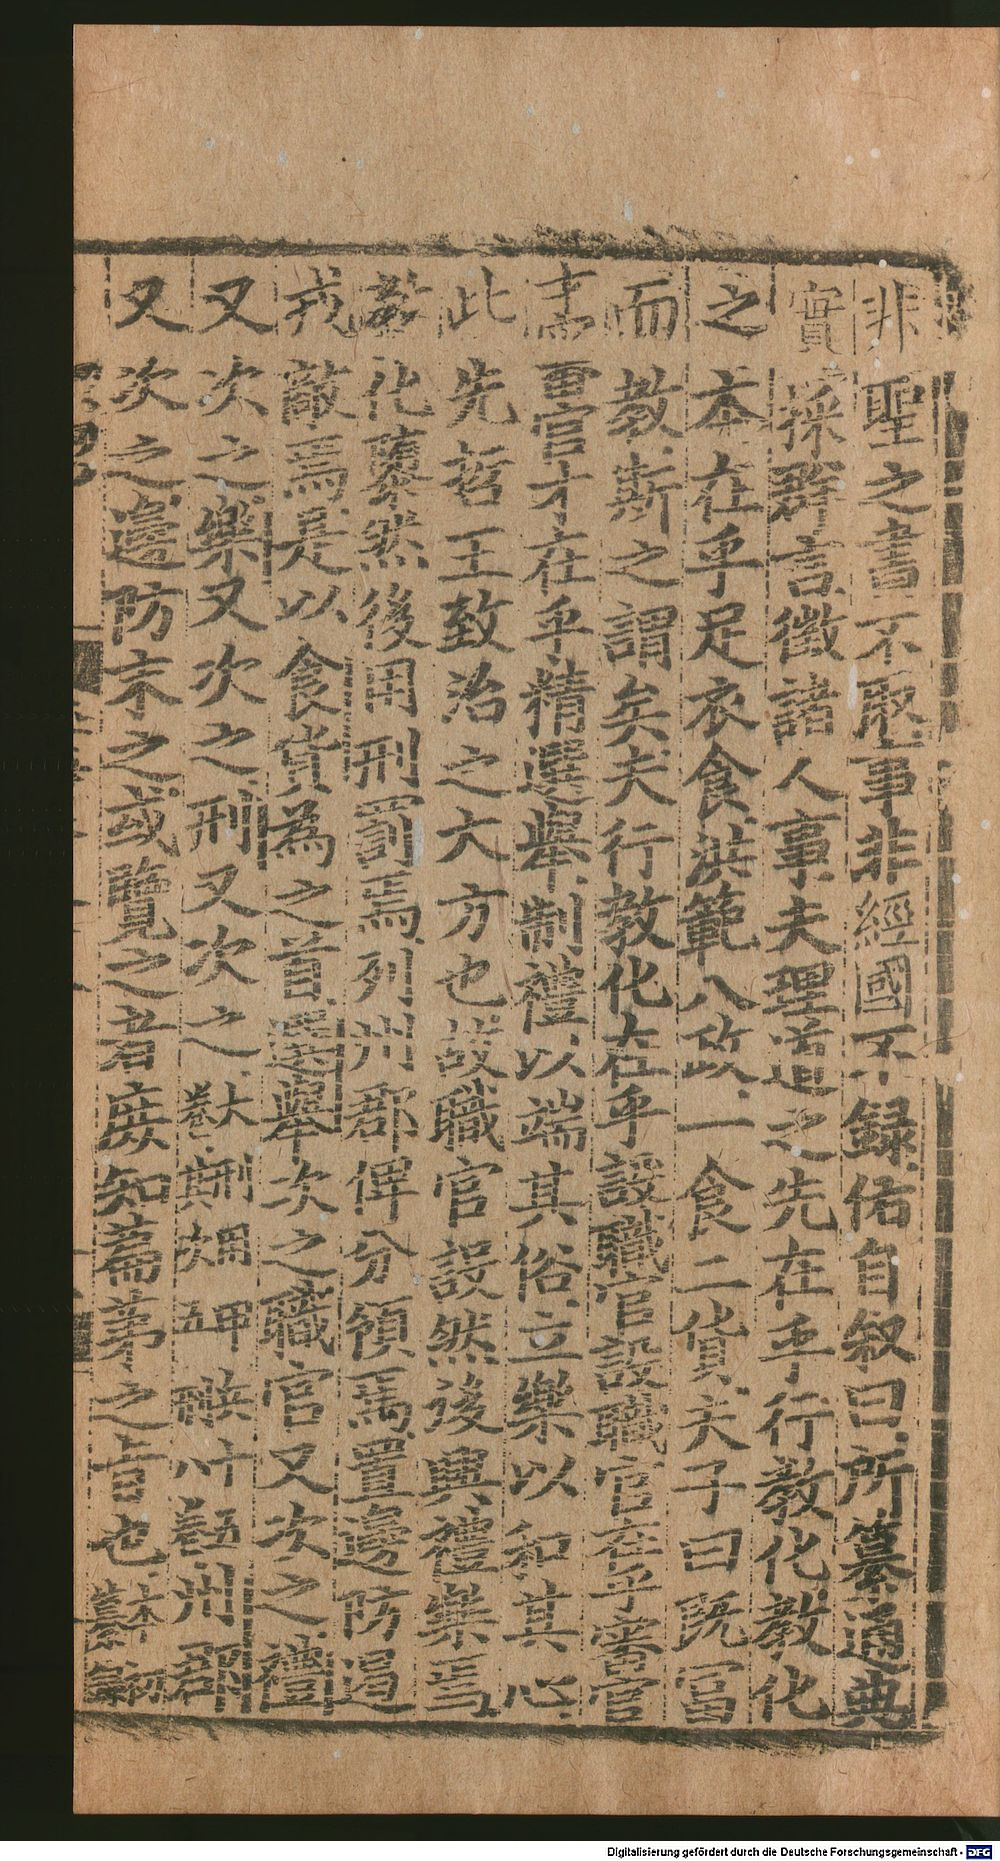 非聖之書不取事非經國不録佑自叙曰所纂通典
實採群言徵諸人事夫理道之先在乎行教化教化
之本在乎足衣食洪範八政一食二貨夫子曰既富
而教斯之謂矣夫行教化在乎設職官設職官在乎審官
才審官才在乎精選舉制禮以端其俗立樂以和其心
此先哲王致治之大方也故職官設然後興禮樂焉
教化隳然後用刑罰焉列州郡俾分領焉置邊防遏
戎敵焉是以食貨為之首選舉次之職官又次之禮
又次之樂又次之刑又次之大刑用甲兵十五卷其次五刑八卷州郡
又次之邊防末之或覽之者庶知篇第之旨也本初纂
Digitalisierung gefördert durch die Deutsche Forschungsgemeinschaft - DFG